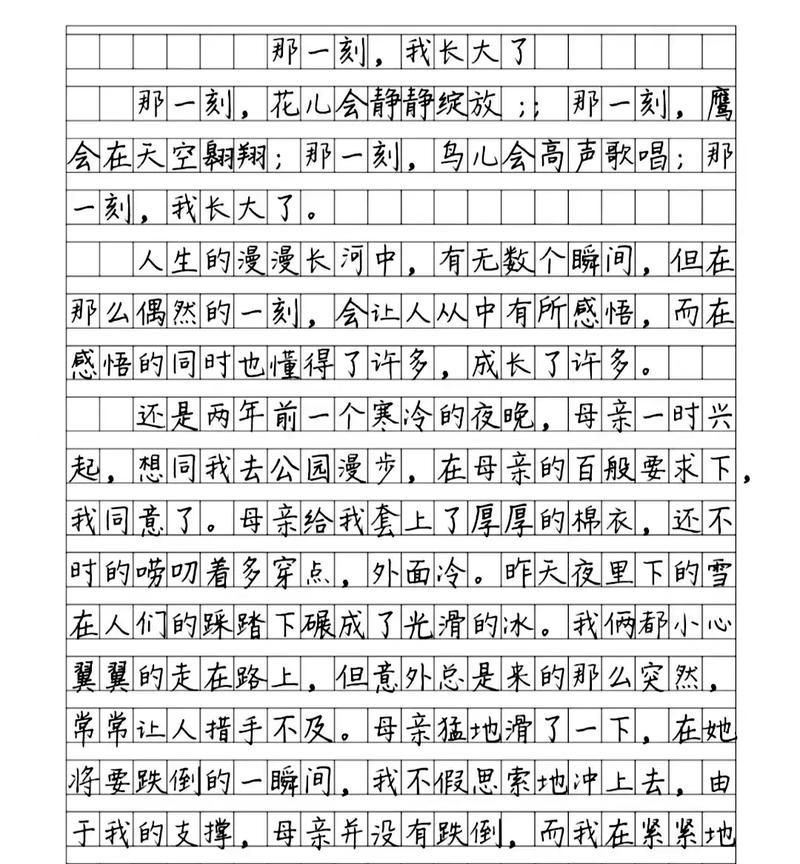 那一刻，我长大了
那一刻，花儿会静静绽放；；那一刻，鹰
会在天空翱翔；那一刻，鸟儿会高声歌唱；那
一刻，我长大了。
人生的漫漫长河中，有无数个瞬间，但在
那么偶然的一刻，会让人从中有所感悟，而在
感悟的同时也懂得了许多，成长了许多。
还是两年前一个寒冷的夜晚，母亲一时兴
起，想同我去公园漫步，在母亲的百般要求下，
我同意了。母亲给我套上了厚厚的棉衣，还不
时的唠叨着多穿点，外面冷。昨天夜里下的雪
在人们的踩踏下碾成了光滑的冰。我俩都小心
翼翼的走在路上，但意外总是来的那么突然，
常常让人措手不及。母亲猛地滑了一下，在她
将要跌倒的一瞬间，我不假思索地冲上去，由
于我的支撑，母亲并没有跌倒，而我在紧紧地